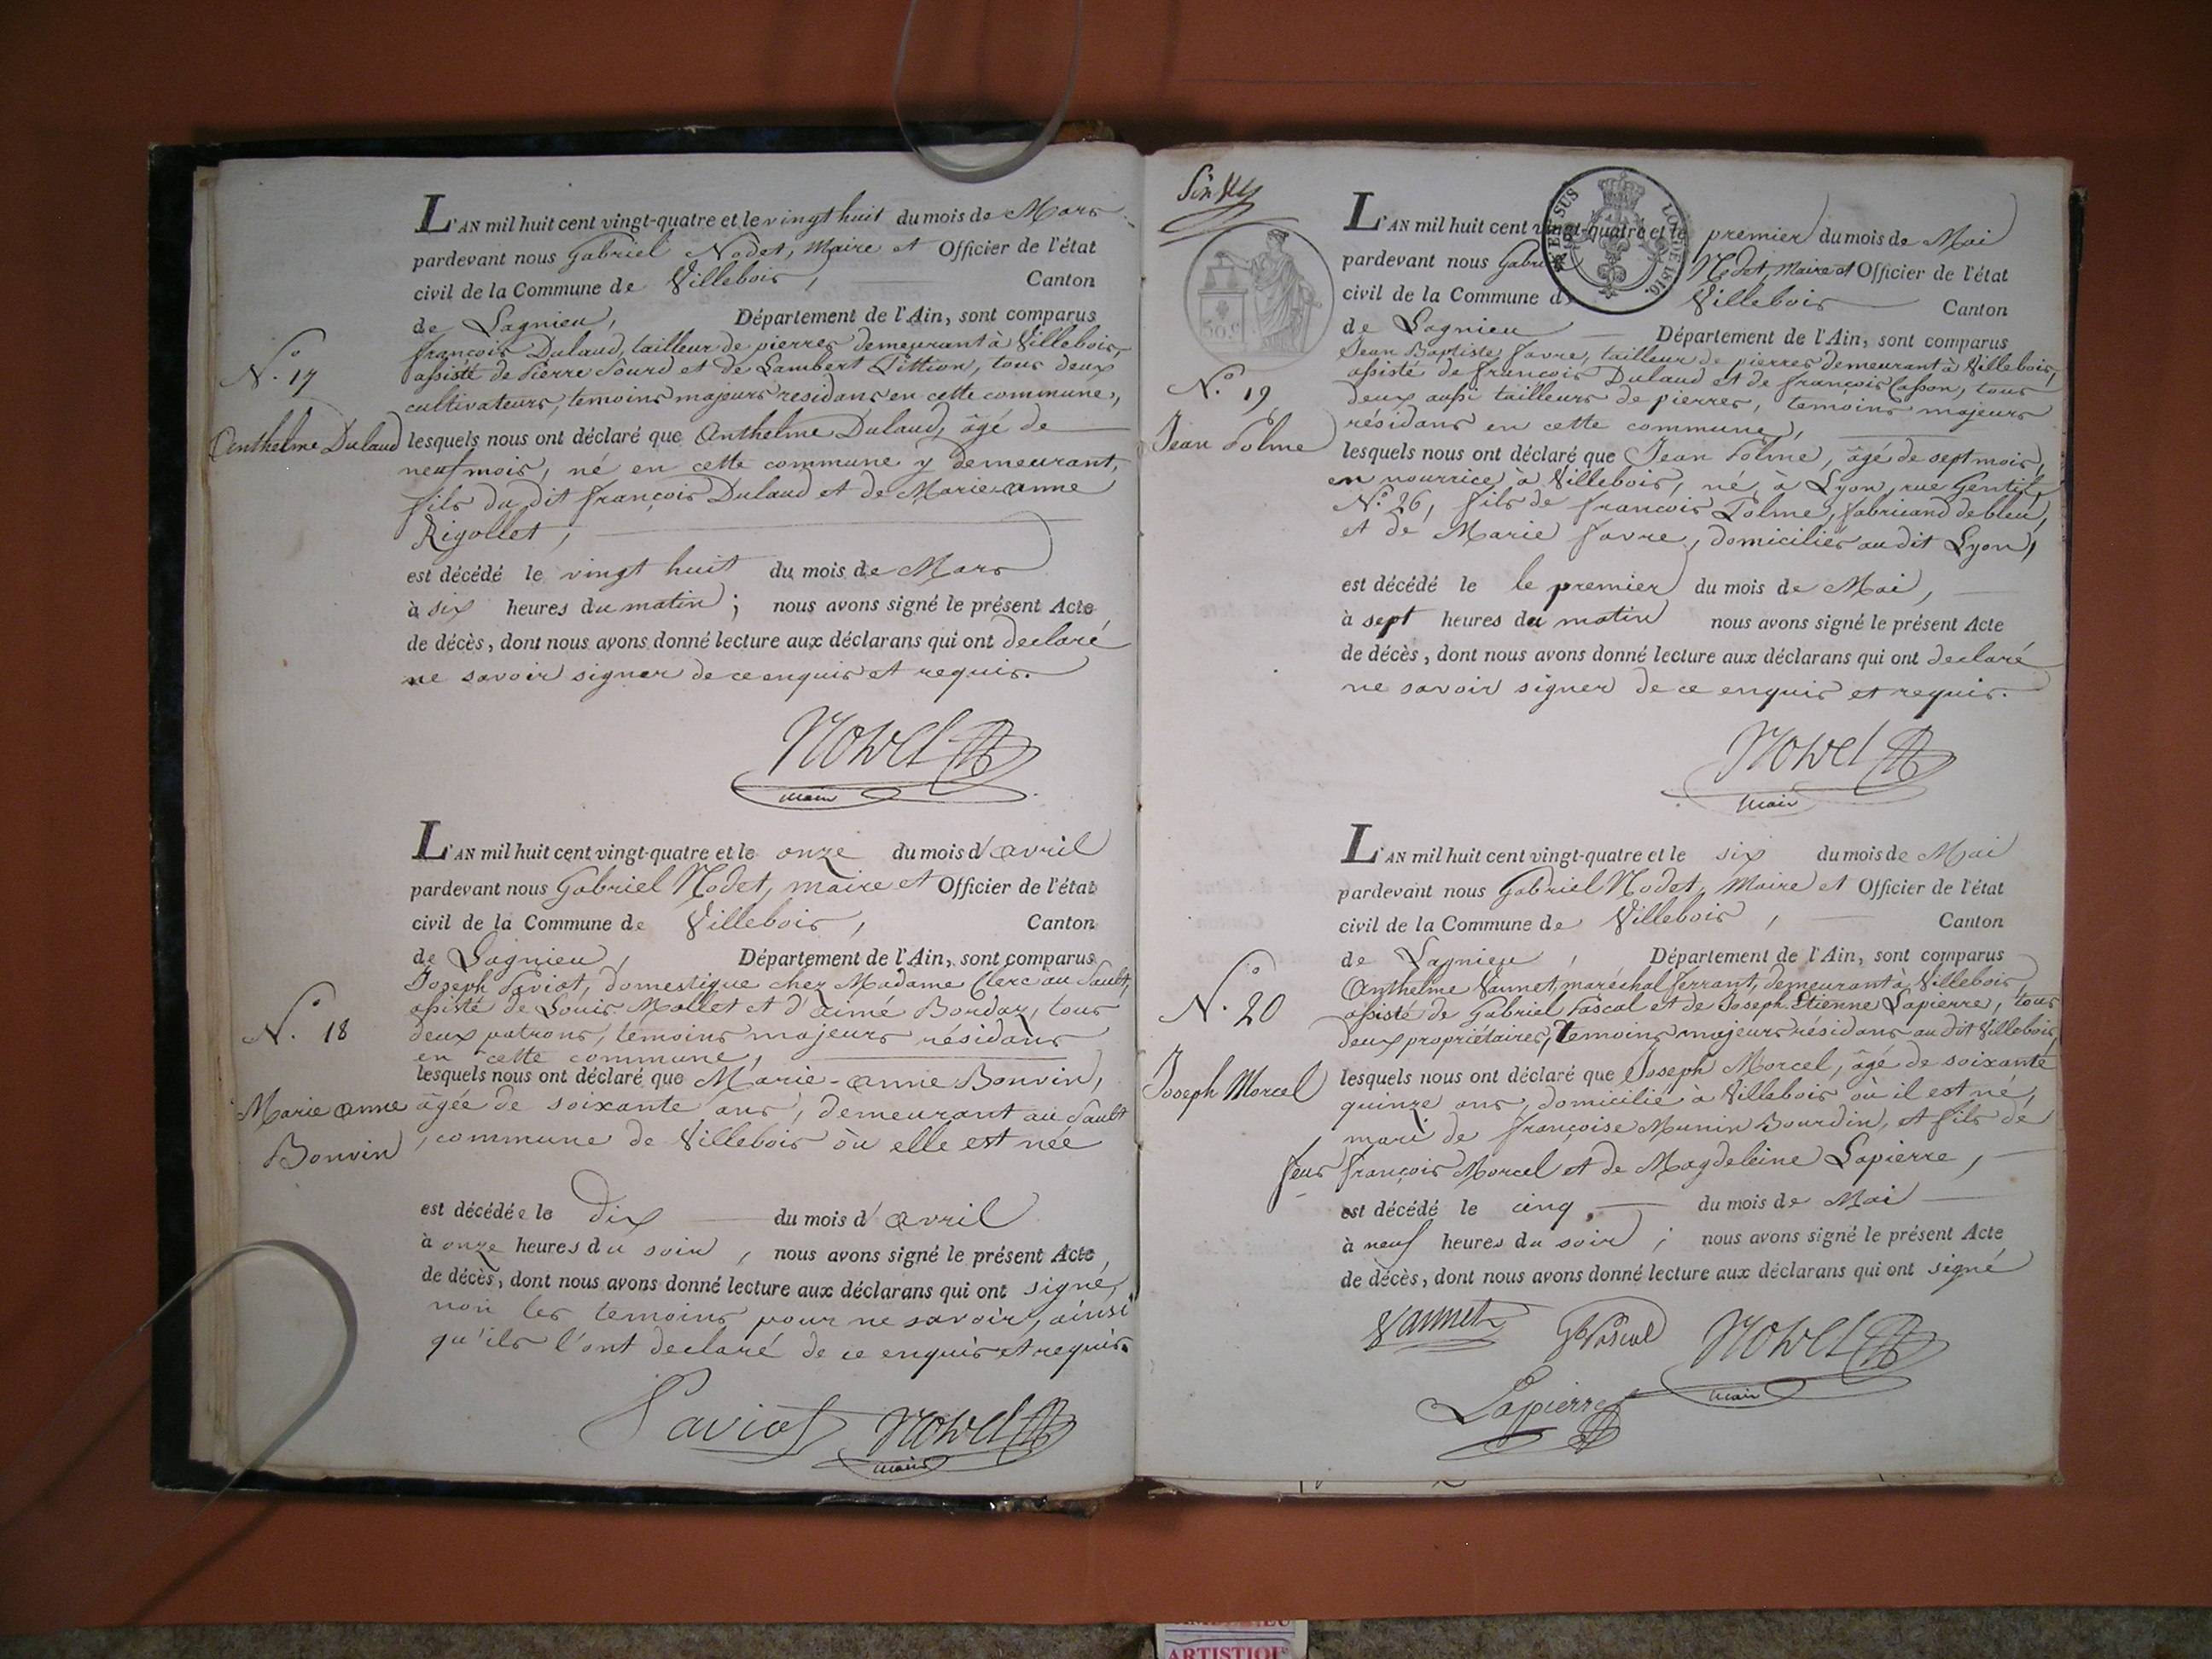 L'AN mil huit cent vingt-quatre et le vingt huit du mois de Mars
pardevant nous Gabriel Nodet, Maire et Officier de l'état
civil de la Commune de Villebois, Canton
de Lagnieu, Département de l'Ain, sont comparus
françois Dulaud, tailleur de pierres demeurant à Villebois,
assisté de Pierre Sourd et de Lambert Tittion, tous deux
cultivateurs, temoins majeurs residans en cette commune,
N.º 17
Anthelme Dulaud
lesquels nous ont déclaré que Anthelme Dulaud, âgé de
neuf mois, né en cette commune y demeurant,
fils du dit françois Dulaud et de Marie-anne
Rigollet,
est décédé le vingt huit du mois de Mars
à six heures du matin; nous avons signé le présent Acte
de décès, dont nous avons donné lecture aux déclarans qui ont declaré
ne savoir signer de ce enquis et requis.
Nodet
maire
L'AN mil huit cent vingt-quatre et le onze du mois d'avril
pardevant nous Gabriel Nodet, maire et Officier de l'état
civil de la Commune de Villebois, Canton
de Lagnieu, Département de l'Ain, sont comparus
Joseph Paviot, domestique chez Madame Clerc au Sault,
assisté de Louis Mollet et d'aimé Bordaz, tous
deux patrons, temoins majeurs résidans
en cette commune,
N.º 18
Marie anne
Bonvin
lesquels nous ont déclaré que Marie-anne Bonvin,
âgée de soixante ans, demeurant au Sault
, commune de Villebois où elle est née
est décédée le dix du mois d'avril
à onze heures du soir, nous avons signé le présent Acte
de décès, dont nous avons donné lecture aux déclarans qui ont signé,
non les temoins pour ne savoir, ainsi
qu'ils l'ont declaré de ce enquis et requis.
Paviot Nodet
maire
30 c.
SUS
LOI DE 1816.
L'AN mil huit cent vingt-quatre et le premier du mois de Mai
pardevant nous Gabriel Nodet, Maire et Officier de l'état
civil de la Commune de Villebois Canton
de Lagnieu Département de l'Ain, sont comparus
Jean Baptiste favre, tailleur de pierres demeurant à Villebois,
assisté de françois Dulaud et de françois Casson, tous
deux aussi tailleurs de pierres, temoins majeurs
résidans en cette commune,
N.º 19
Jean Tolme
lesquels nous ont déclaré que Jean Tolme, âgé de sept mois,
en nourrice à Villebois, né à Lyon, rue Gentil,
N.º 26, fils de françois Tolme, fabricand de bleu,
et de Marie favre, domiciliés au dit Lyon,
est décédé le le premier du mois de Mai,
à sept heures du matin nous avons signé le présent Acte
de décès, dont nous avons donné lecture aux déclarans qui ont declaré
ne savoir signer de ce enquis et requis.
Nodet
maire
L'AN mil huit cent vingt-quatre et le six du mois de Mai
pardevant nous Gabriel Nodet, Maire et Officier de l'état
civil de la Commune de Villebois, Canton
de Lagnieu, Département de l'Ain, sont comparus
Anthelme Vannet, maréchal ferrant, demeurant à Villebois,
assisté de Gabriel Pascal et de Joseph Etienne Lapierre, tous
deux propriétaires, temoins majeurs résidans au dit Villebois,
N.º 20
Joseph Morcel
lesquels nous ont déclaré que Joseph Morcel, âgé de soixante
quinze ans, domicilié à Villebois où il est né,
mari de françoise Munin Bourdin, et fils de
feus françois Morcel et de Magdeleine Lapierre,
est décédé le cinq, du mois de Mai
à neuf heures du soir; nous avons signé le présent Acte
de décès, dont nous avons donné lecture aux déclarans qui ont signé
Vannet Gl Pascal Nodet
maire
Lapierre
ARTISTIQUE